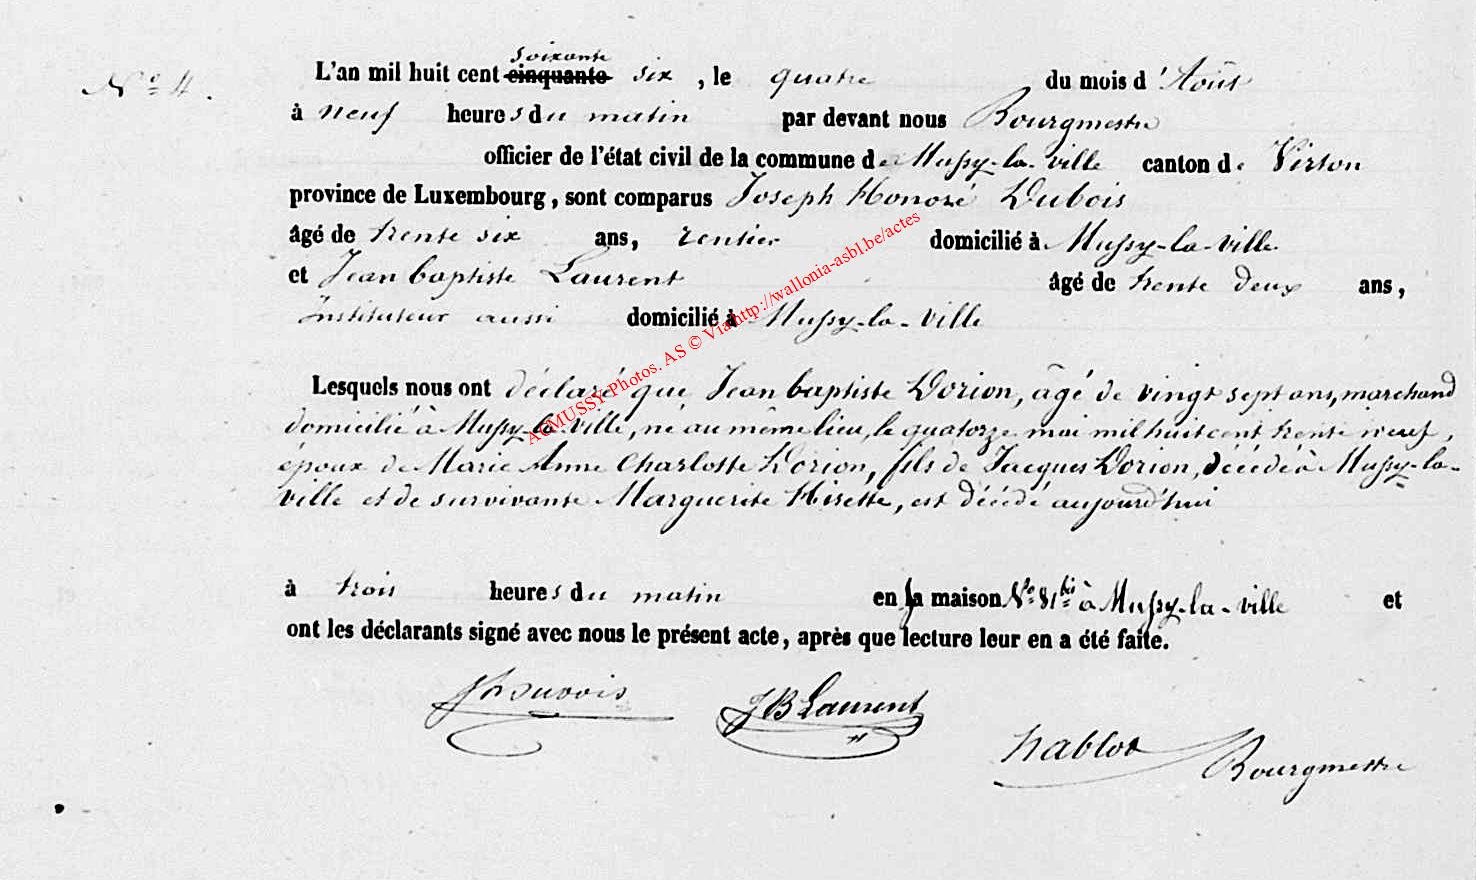 soixante
N° 4. L'an mil huit cent cinquante six, le quatre du mois d'Août
à neuf heures du matin par devant nous Bourgmestre
officier de l'état civil de la commune de Mussy-la-ville canton de Virton
province de Luxembourg, sont comparus Joseph Honoré Dubois
âgé de trente six ans, rentier domicilié à Mussy-la-ville
et Jean baptiste Laurent âgé de trente deux ans,
instituteur aussi domicilié à Mussy-la-ville
Lesquels nous ont déclaré que Jean baptiste Dorion, âgé de vingt sept ans, marchand
domicilié à Mussy-la-ville, né au même lieu, le quatorze mai mil huit cent trente neuf,
époux de Marie Anne Charlotte Dorion, fils de Jacques Dorion, décédé à Mussy-la-
ville et de survivante Marguerite Hisette, est décédé aujourd'hui
à trois heures du matin en sa maison N° 81 bis à Mussy-la-ville et
ont les déclarants signé avec nous le présent acte, après que lecture leur en a été faite.
JH Dubois
JB Laurent
Nablot Bourgmestre
ACMUSSY-Photos. AS © Via http://wallonia-asbl.be/actes